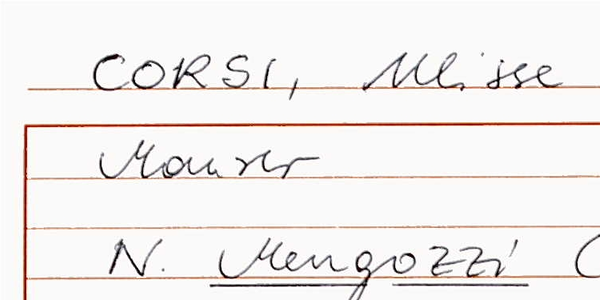 CORSI, Ulisse
Maurer
N. Mengozzi (